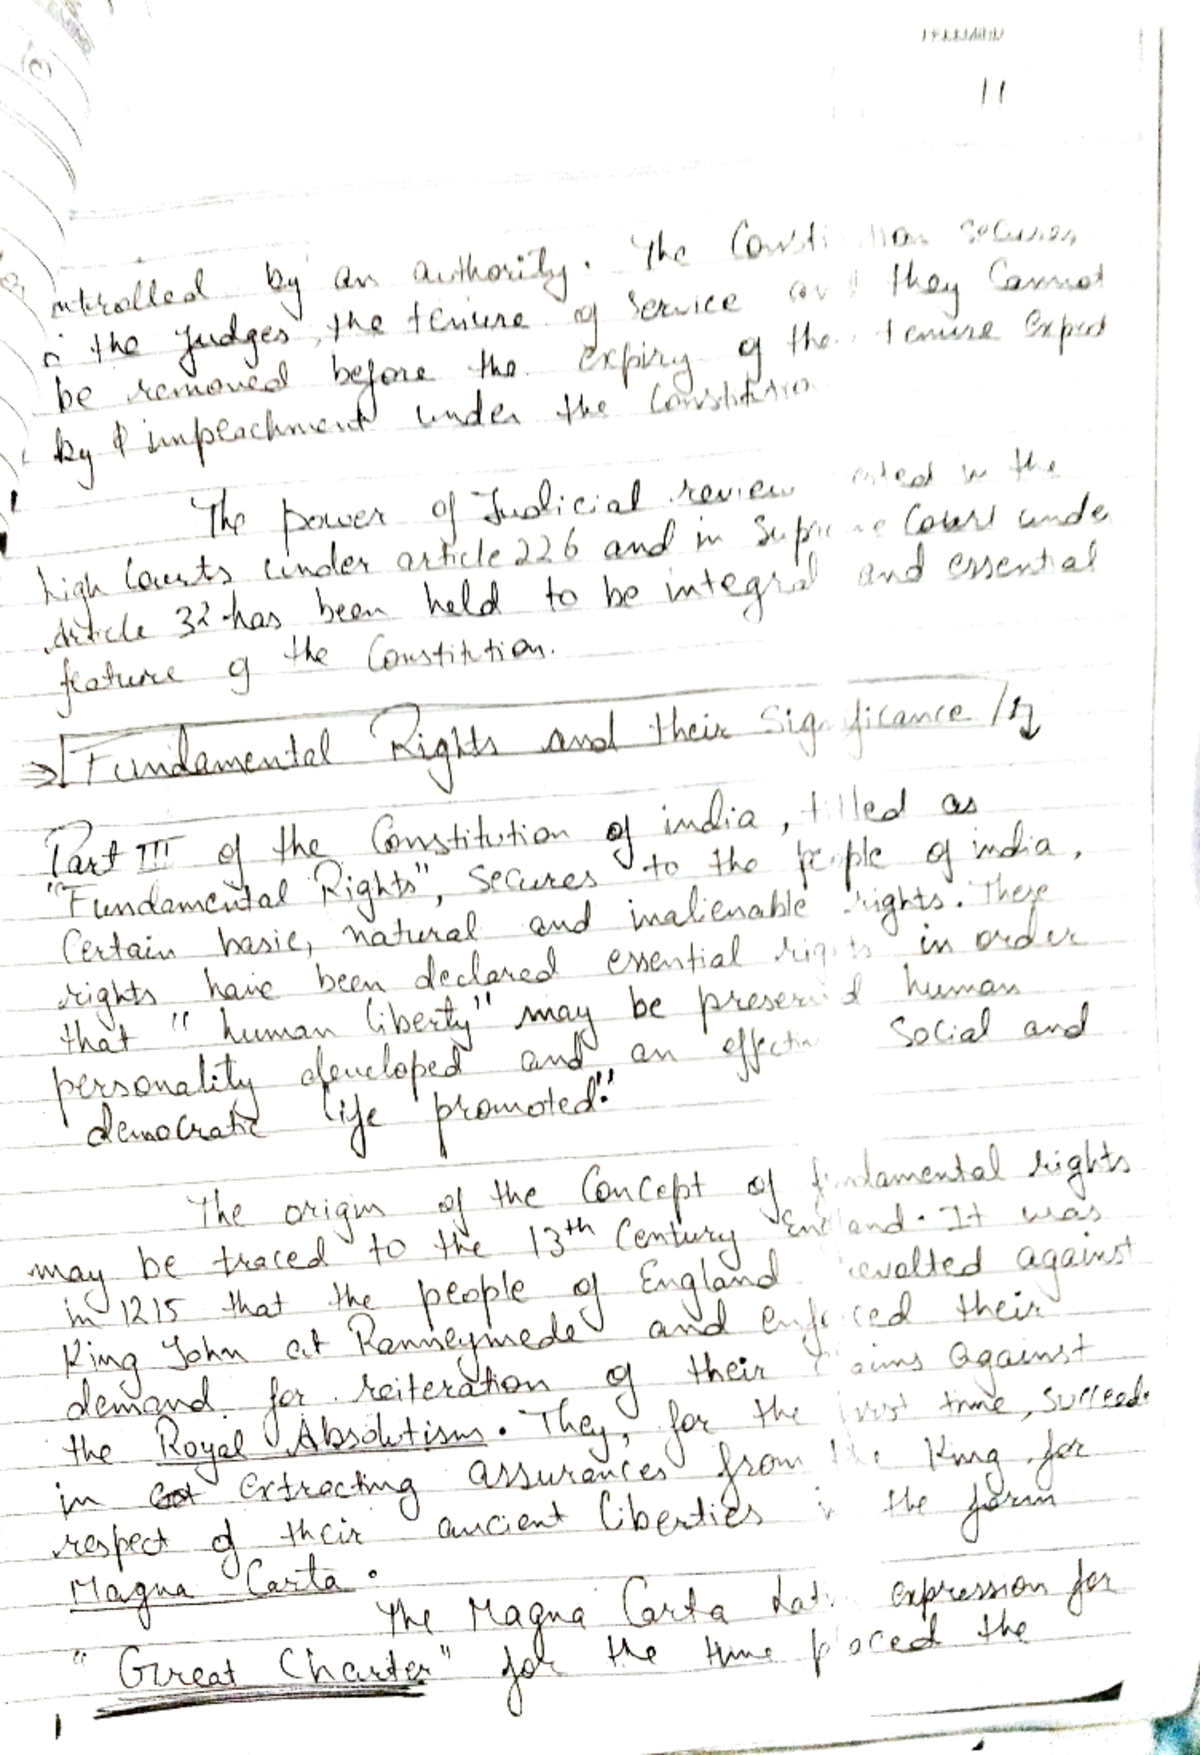 11
by an authority. The secures
the Judges, the tenure of Service they Cannot
be removed before the expiry of the tenure Expect
by impeachment under the Constitution
The power of Judicial review in the
high Courts under article 226 and in Supreme Court under
Article 32 has been held to be integral and essential
feature of the Constitution.
⇒ Fundamental Rights and their Significance
Part III of the Constitution of india, titled as
"Fundamental Rights", Secures to the people of india,
Certain basic, natural and inalienable rights. These
rights have been declared essential rights in order
that "human liberty" may be preserved human
personality developed and an effective Social and
democratic life promoted."
The origin of the Concept of fundamental rights
may be traced to the 13th Century England. It was
in 1215 that the people of England revolted against
King John at Ranneymede and enforced their
demand for reiteration of their claims against
the Royal Absolutism. They, for the first time, Succeede
in extracting assurances from the King for
respect of their ancient liberties the form
Magna Carta.
The Magna Carta expression for
"Great Charter" for the time placed the